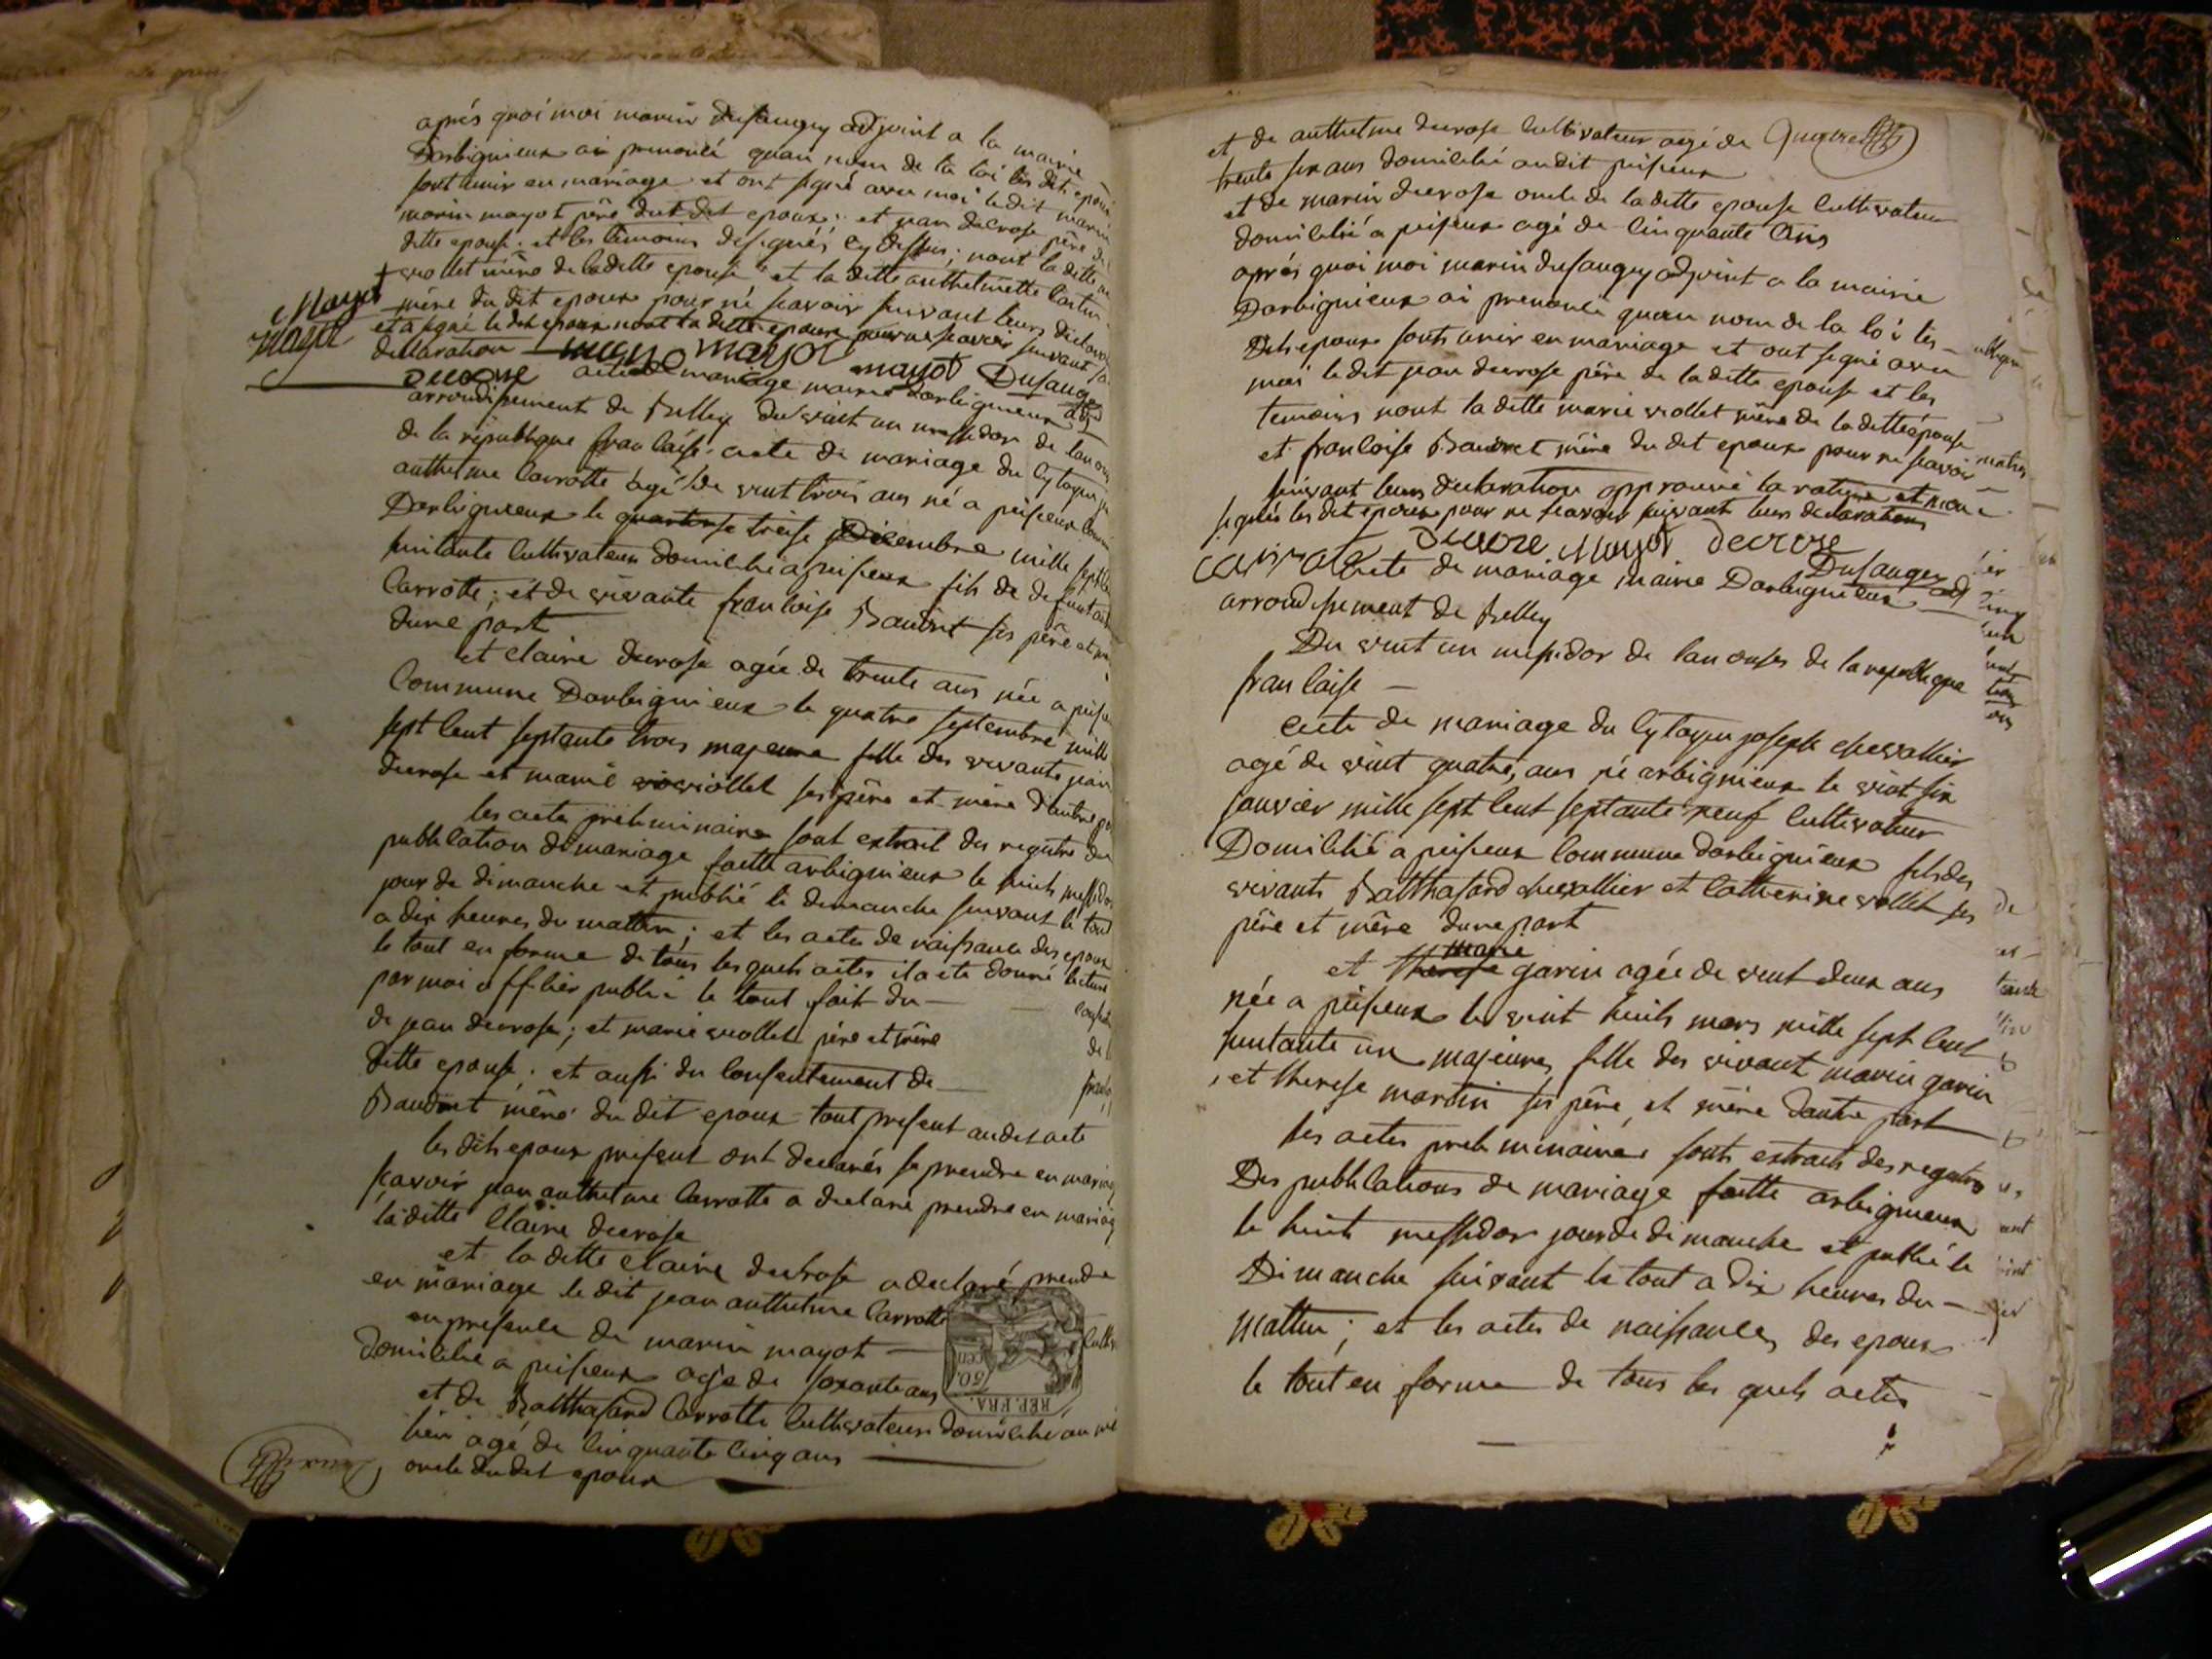 après quoi moi marin dusaugey adjoint a la mairie
Darbignieux ai prononcé quau nom de la loi les dits epoux
sont unir en mariage et ont signé avec moi ledit marin
marin mayot père dudit dit epoux; et jean decrose père de
ditte epouse. et les témoins désignés cy dessus; nont la ditte
viollet mère de laditte epouse et la ditte anthelmette
mère du dit epoux pour ne scavoir suivant leurs declara
et a signé le dit epoux nont la ditte epouse pour ne scavoir suivant sa
declaration mayot mayot Dusaugey
Mayot
mayot
decrose acte de mariage mairie darbignieux adj
arrondissement de Belley du vint un messidor de lan onze
de la république francaise. acte de mariage du cytoyen jean
anthelme Carrotte agé de vint trois ans né a peisieux
Darbignieux le quatorse treise Décembre mille sept
huitante cultivateur domicilié a peisieux fils de defunt
Carrotte; et de vivante francoise Baudret ses père et
dune part
et claire decrose agée de trente ans née a
Commune Darbignieux le quatre septembre mille
sept cent septante trois majeure fille des vivants jean
decrose et marie viollet ses père et mère dautre
les actes préliminaires sont extrait des registre des
publication de mariage faitte arbignieux le huit messidor
jour de dimanche et publié le dimanche suivant le tout
a dix heures du mattin; et les actes de naissance des epoux
le tout en forme de tous les quels actes il a été donné lecture
par moi officier public le tout fait du —
de jean decrose; et marie viollet père et mère
ditte epouse; et aussi du consentement de —
Baudret mère du dit epoux tout present audit acte
les dits epoux present ont declarés se prendre en mariage
scavoir jean anthelme Carrotte a declaré prendre en mariage
la ditte Claire decrose
et la ditte claire decrose a declaré prendre
en mariage le dit jean anthelme Carrotte
en presence de marin mayot —
domicilié a peisieux agé de soxante ans
et de Balthasard Carrotte cultivateur domicilié au
lieu agé de cinquante cinq ans
oncle du dit epoux
50. cen
REP. FRA.
et de anthelme decrose cultivateur agé de
trente six ans domicilié audit peisieux
et de marin decrose oncle de laditte epouse cultivateur
domicilié a peisieux agé de cinquante cinq
après quoi moi marin dusaugey adjoint a la mairie
Darbignieux ai prononcé quau nom de la loi les
dits epoux sonts unir en mariage et ont signé avec
moi le dit jean decrose père de la ditte epouse et les
temoins nont la ditte marie viollet mère de la ditte epouse
et francoise Baudret mère du dit epoux pour ne scavoir
suivant leurs declaration approuvé la rature et non
signés les dit epoux pour ne scavoir suivant leurs declarations
decrose Mayot decrose
Carrotte Dusaugey adj
acte de mariage mairie Darbignieux
arrondissement de Belley
Du vint un messidor de lan onses de la republique
francaise —
acte de mariage du cytoyen joseph chevallier
agé de vint quatre, ans né arbignieux le vint six
janvier mille sept cent septante neuf cultivateur
Domicilié a peisieux Commune darbignieux fils des
vivants Balthasard chevallier et Catherine viollet ses
père et mère dune part
marie
et therese garin agée de vint deux ans
née a peisieux le vint huits mars mille sept cent
huitante un majeure, fille des vivant marin garin
et therese martin ses père et mère dautre part
les actes preliminaires sonts extraits des registres
Des publications de mariage faitte arbignieux
le huit messidor jour de dimanche et publié le
Dimanche suivant le tout a dix heures du —
Mattin; et les actes de naissances des epoux
le tout en forme de tous les quels actes